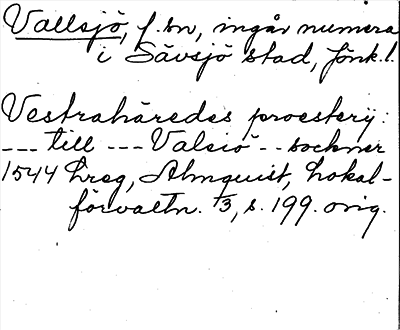 Vallsjö, f. sn, ingår numera
i Sävsjö stad, Jönk. l.
Vestrahäredes proestery:
--- till --- Valsiö -- sockner
1544 hreg, Almquist, Lokal-
förvaltn. 3, s. 199. orig.